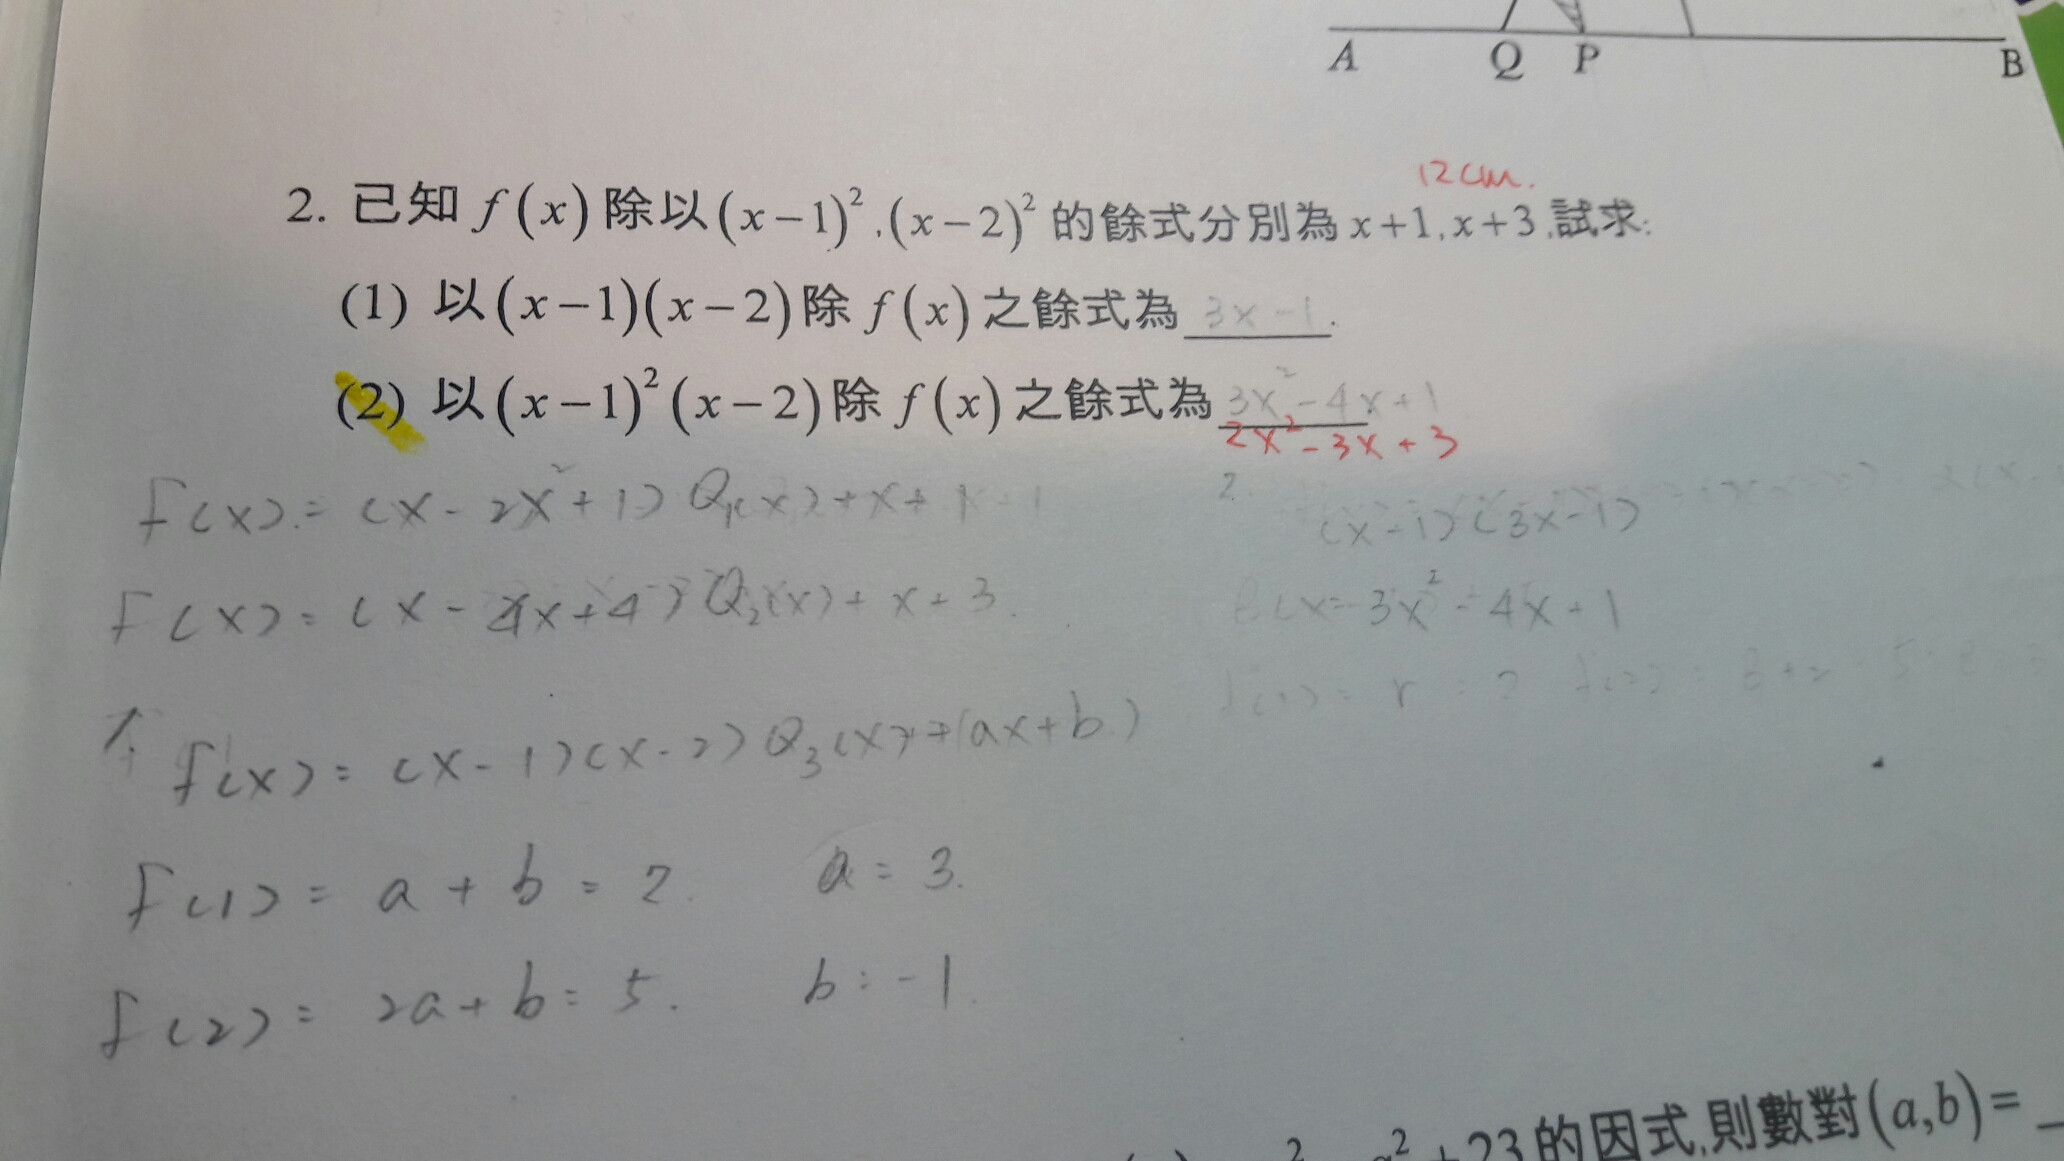 A Q P B
12cm.
2. 已知 f(x) 除以 (x-1)²,(x-2)² 的餘式分別為 x+1,x+3,試求:
(1) 以 (x-1)(x-2) 除 f(x) 之餘式為 3x-1.
(2) 以 (x-1)²(x-2) 除 f(x) 之餘式為 3x²-4x+1
2x²-3x+3
f(x)=(x-2x²+1)Q₁(x)+x+1
f(x)=(x-4x+4)Q₂(x)+x+3.
1. f(x)=(x-1)(x-2)Q₃(x)+(ax+b)
f(1)=a+b=2. a=3.
f(2)=2a+b=5. b=-1.
2.
(x-1)(3x-1)
3x²-4x+1
+23的因式,則數對(a,b)=